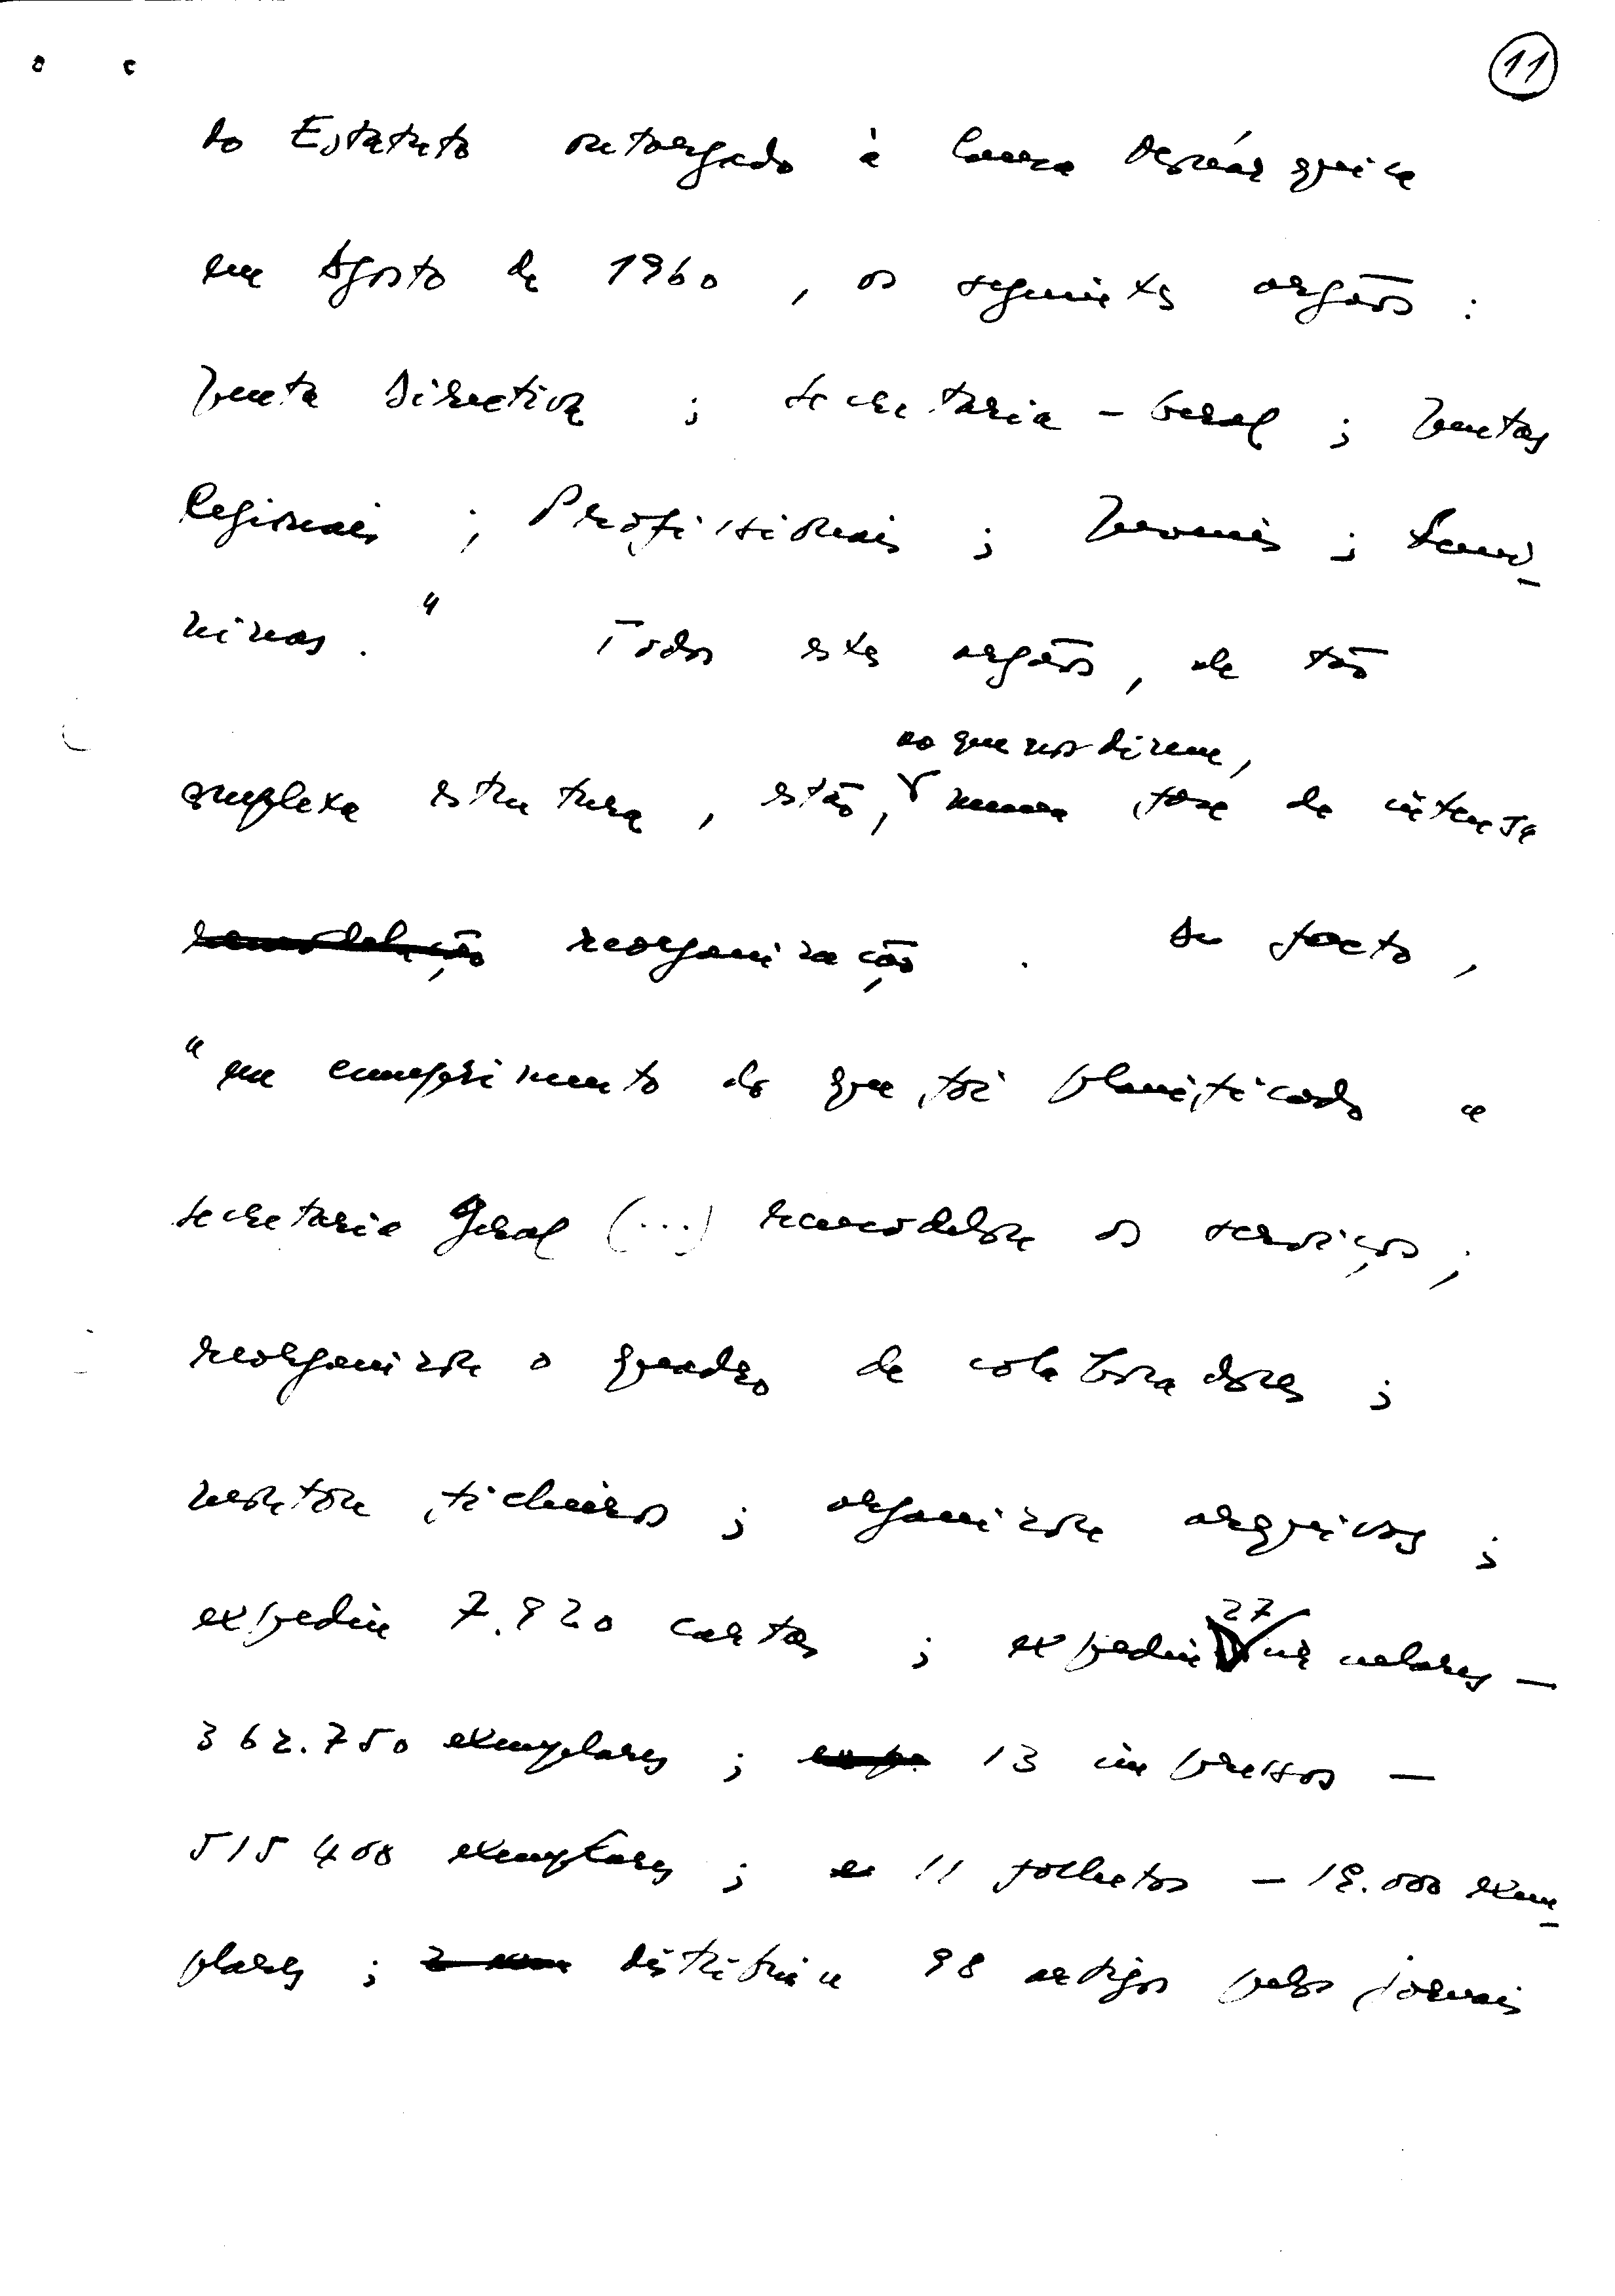 11
do Estatuto outorgado à Causa Monárquica
em Agosto de 1960, os seguintes orgãos :
Junta Directiva ; Secretaria - Geral ; Juntas
Regionais ; Profissionais ; Juvenis ; Femi-
ninas." Todos estes orgãos, de tão
ao que nos dizem,
complexa estrutura, estão, numa fase de intensa
remodelação reorganização . De facto,
"em cumprimento do que foi planificado a
Secretaria Geral (...) remodelou os serviços ;
reorganizou o quadro de colaboradores ;
montou ficheiros ; organizou arquivos ;
expediu 7.920 cartas ; expediu 27 circulares -
362.750 exemplares ; 13 impressos -
515 400 exemplares ; 11 folhetos - 19.000 exem-
plares ; distribuiu 98 artigos pelos jornais